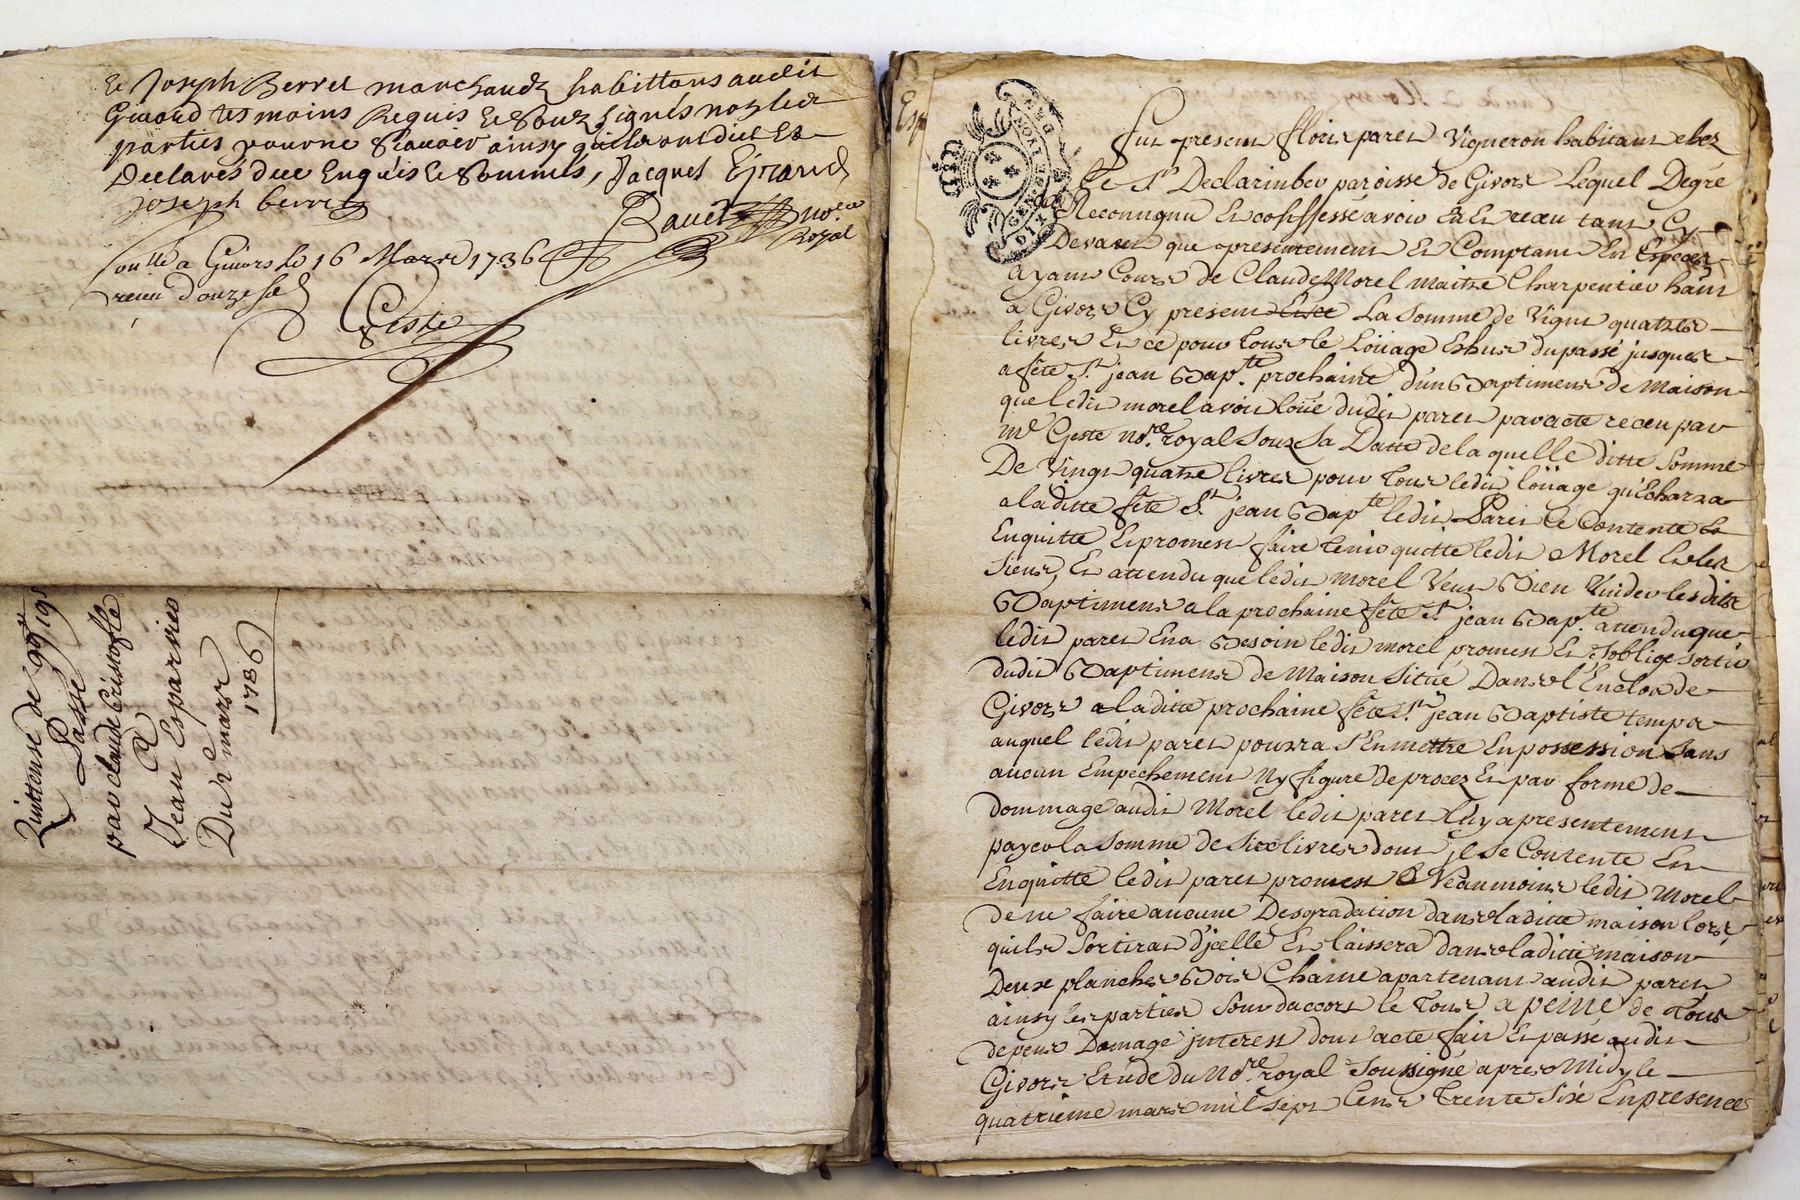 Et Joseph Berret marchands habittans audit
Givord tesmoins Requis Et Souz signés nozler
parties pour ne Scavoir ainsy quils ont dit Et
Declarés due Enquis Et Sommés, Jacques
Joseph berret
Bauet no.re
Royal
a Givors le 16 Mars 1736
receu douze sol
Geste
Quittense de
Passé
par claude Cristofle
A
Jean Esparvies
Du 2 mars
1736
Esp
GEN DE LYON
Fut present floris paret Vigneron habitant chez
le Sr Declarinbev paroisse de Givors Lequel Degré
a Reconngnu Et confessé avoir Eu Et receu tant Cy
Devant que presentement Et Comptant En Especes
ayant Cours de Claude Morel maitre Charpentier hant
a Givors Cy present La somme de Vignt quattre
livres Et ce pour tous le Loüage Eshus du passé jusques
a fête St jean Bap.te prochaine d'un Baptiment de Maison
que ledit morel avoit loüé dudit paret par acte receu par
me Geste no.re royal Souz Sa Datte de laquelle ditte Somme
De Vingt quatre livres pour Tous ledit loüage qu'Echarra
a laditte fête St jean Bap.te ledit Paret Se Contente Et
Enquitte Et promest faire tenir quitte ledit Morel Et les
Siens, Et attendu que ledit Morel Veut Bien Vuider lesdits
Baptiment a la prochaine fête St jean Bap.te attendu que
ledit paret En a Besoin ledit morel promest Et s'oblige sortir
dudit Baptiment de Maison Situé Dans l'Enclos de
Givors a laditte prochaine fête St jean Baptiste temps
auquel ledit paret pourra S'En mettre En possession Sans
aucun Empechement Ny figure De procez Et par forme de
dommage audit Morel ledit paret luy a presentement
payer la Somme de Six livres dont jl Se Contente En
Enquitte ledit paret promest Neanmoins ledit Morel
de ne faire aucune Desgradation dans laditte maison lors
quils Sortiras D'jcelle Et laissera dans laditte maison
Deux planches Bois Chaine apartenant audit paret
ainsy les parties Sont daccort le Tout a peine de Tous
depens Domage jnterest dont acte fait Et passé audit
Givors Etude du No.re royal Soussigné apres Midy le
quatrième mars mil Sept Cens Trente Sixe En presence